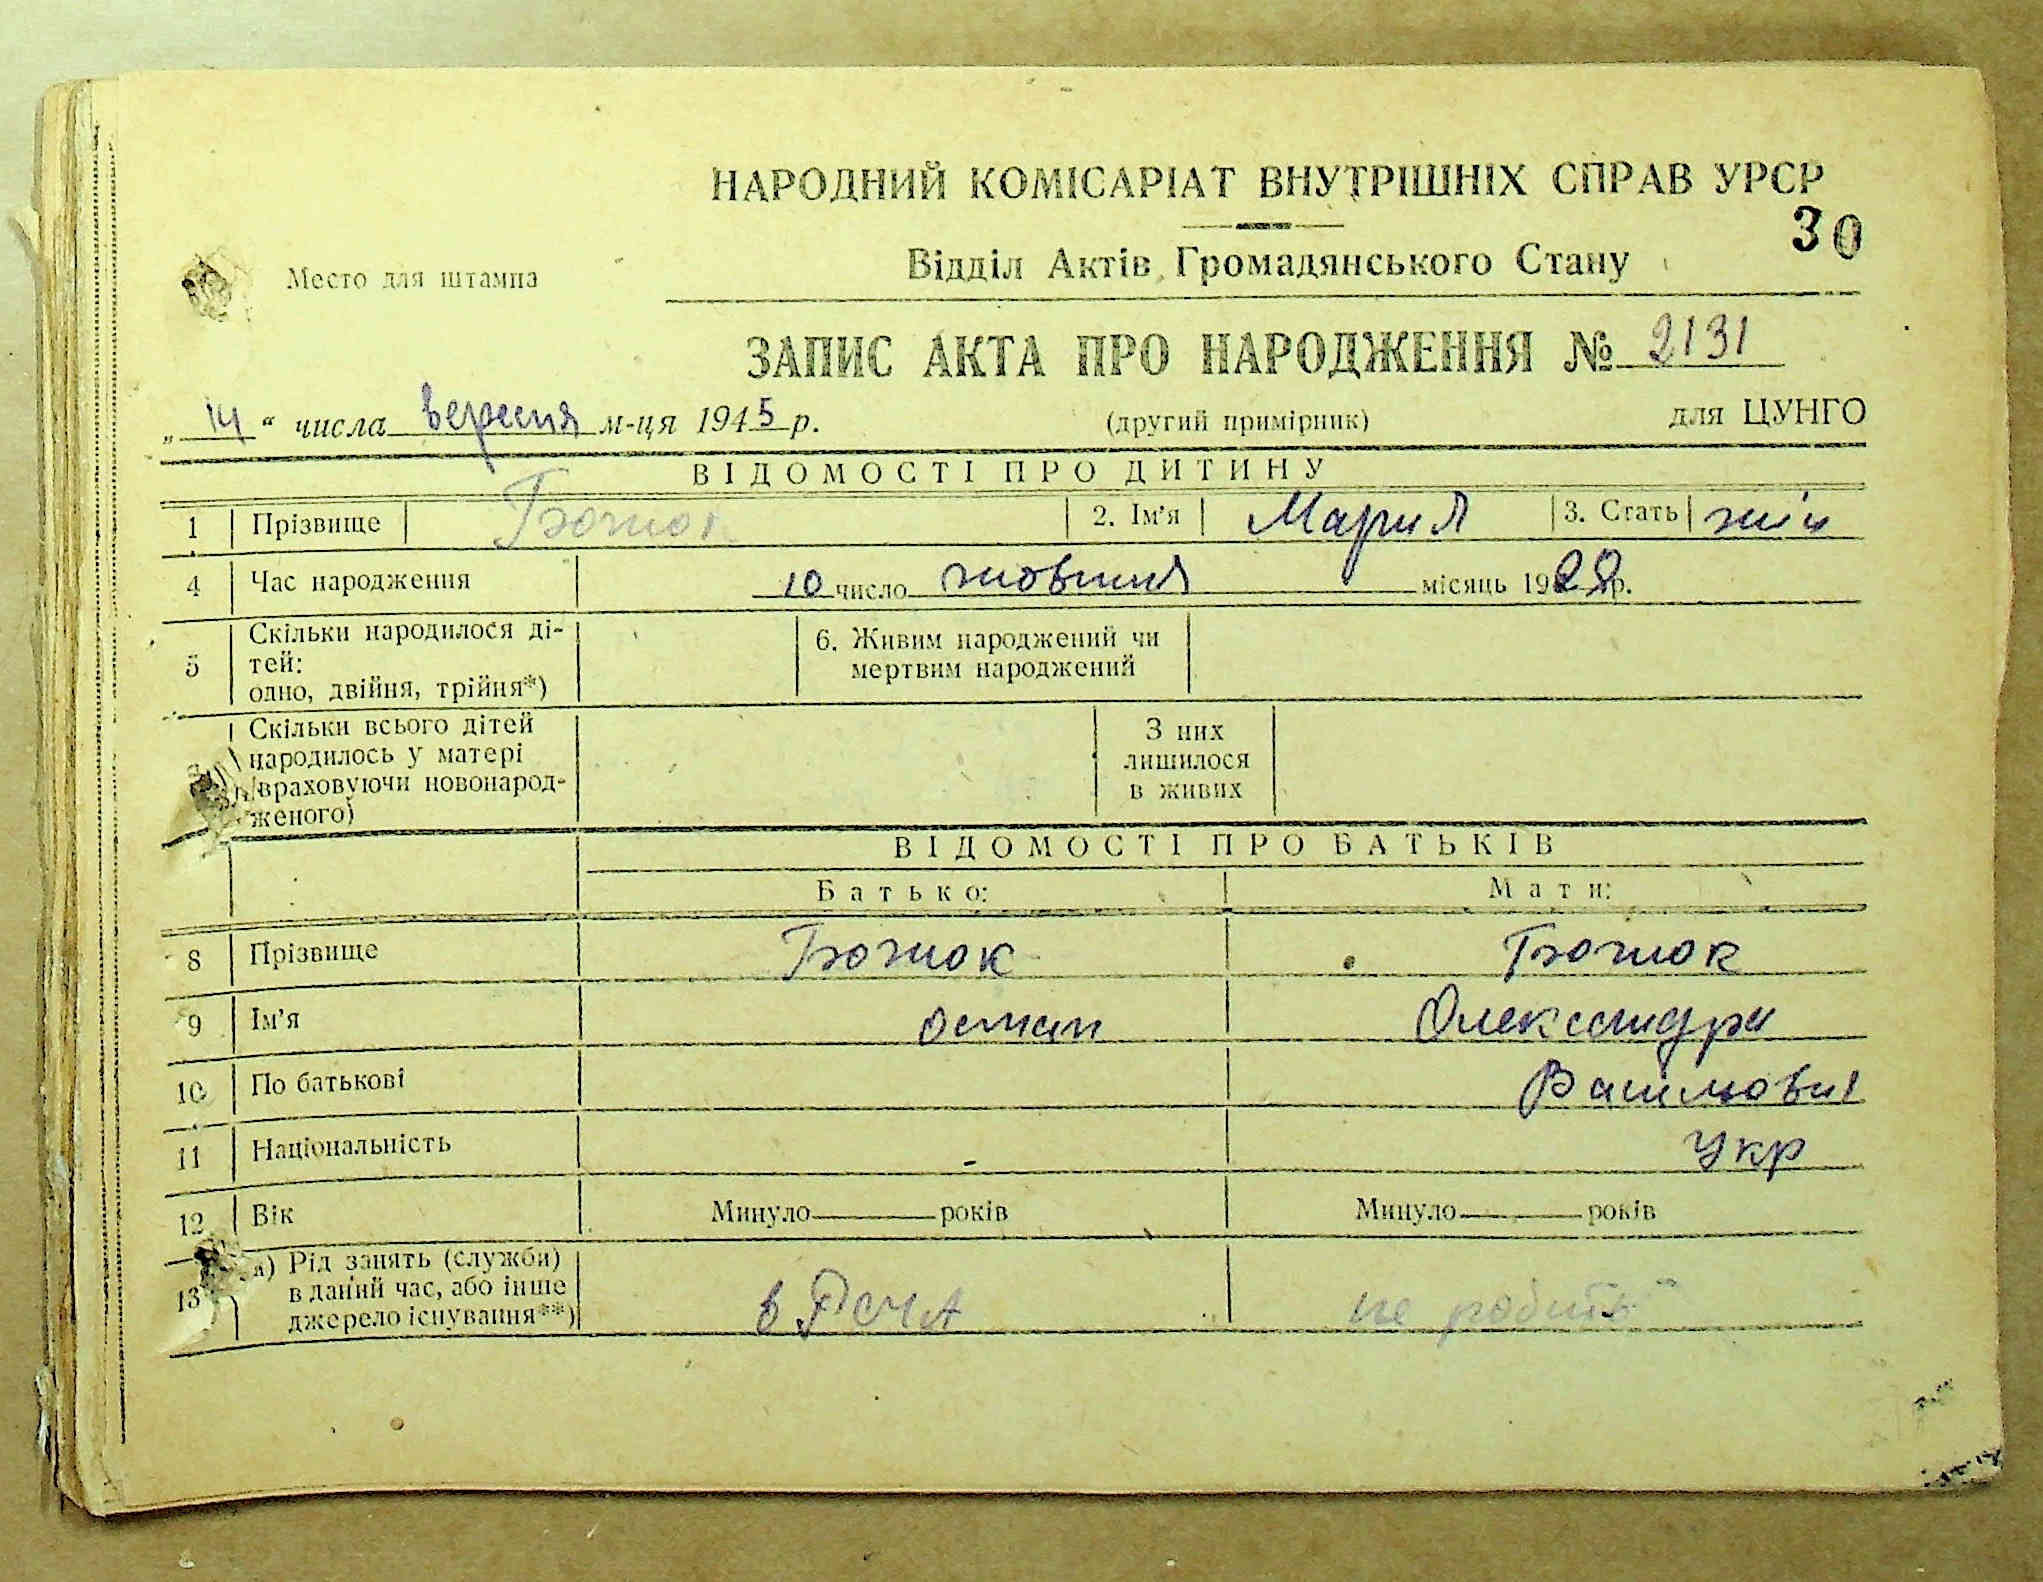 НАРОДНИЙ КОМІСАРІАТ ВНУТРІШНІХ СПРАВ УРСР
30
Место для штампа
Відділ Актів Громадянського Стану
ЗАПИС АКТА ПРО НАРОДЖЕННЯ № 2131
„14“ числа вересня м-ця 1945 р. (другий примірник) для ЦУНГО
ВІДОМОСТІ ПРО ДИТИНУ
1 Прізвище Божок 2. Ім'я Мария 3. Стать жін
4 Час народження 10 число жовтня місяць 1928 р.
5 Скільки народилося ді-
тей:
одно, двійня, трійня*)
6. Живим народжений чи
мертвим народжений
Скільки всього дітей
народилось у матері
(враховуючи новонарод-
женого)
З них
лишилося
в живих
ВІДОМОСТІ ПРО БАТЬКІВ
Батько: Мати:
8 Прізвище Божок Божок
9 Ім'я Остап Олександра
10 По батькові
11 Національність Укр
12 Вік Минуло років Минуло років
13 а) Рід занять (служби)
в даний час, або інше
джерело існування**)
в РСЧА не робить